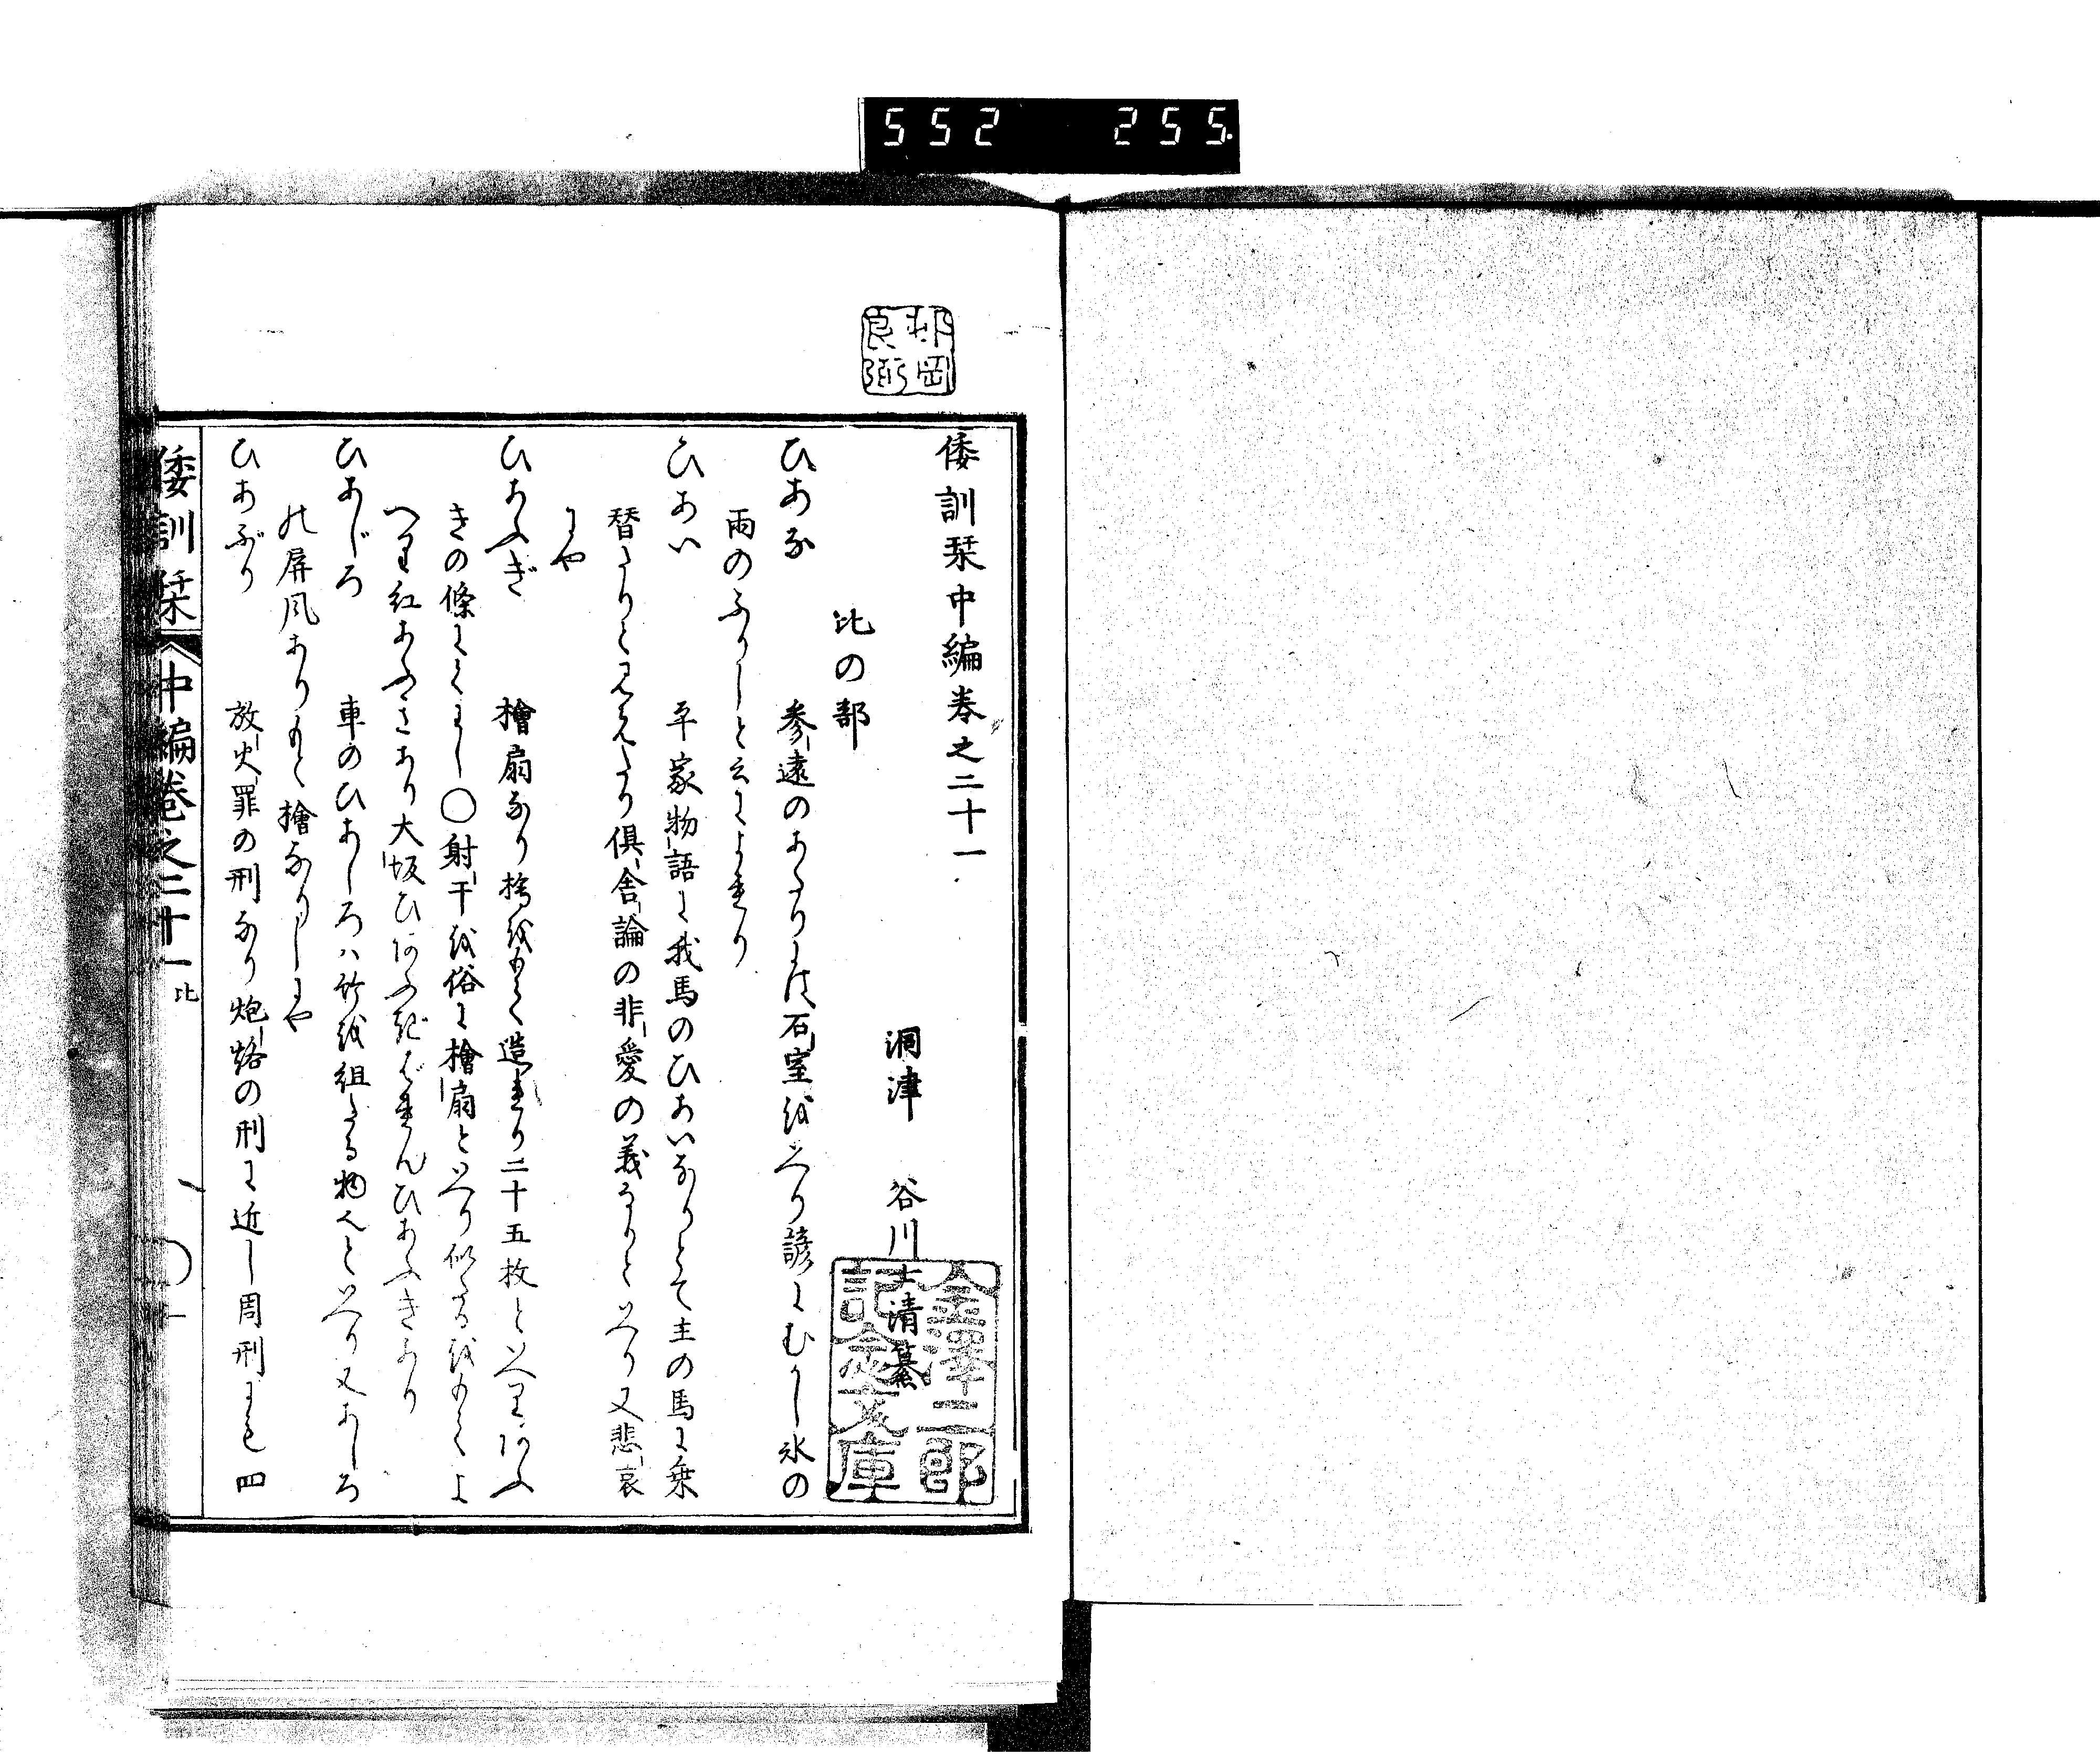 552 255
邨岡良弼
倭訓栞中編卷之二十一
洞津 谷川士清纂
金澤二郎記念文庫
比の部
ひあな 參遠のあたりには石室をいへり諺にむかし氷の
雨のふりしと云によれり
ひあい 平家物語に我馬のひあいなりとて主の馬に乘
替たりと見えたり俱舍論の非愛の義なりといへり又悲哀
にや
ひあふぎ 檜扇なり檜をもて造れり二十五枚といへりあふ
きの條にくはし〇射干を俗に檜扇といへり似たるをもてよ
へり紅あふきあり大坂ひあふぎばれんひあふきあり
ひあじろ 車のひあしろハ竹を組たる物也といへり又あしろ
の屏風ありもと檜なりしにや
ひあぶり 放火罪の刑なり炮烙の刑に近し周刑にも四
倭訓栞 中編卷之二十一 比 一